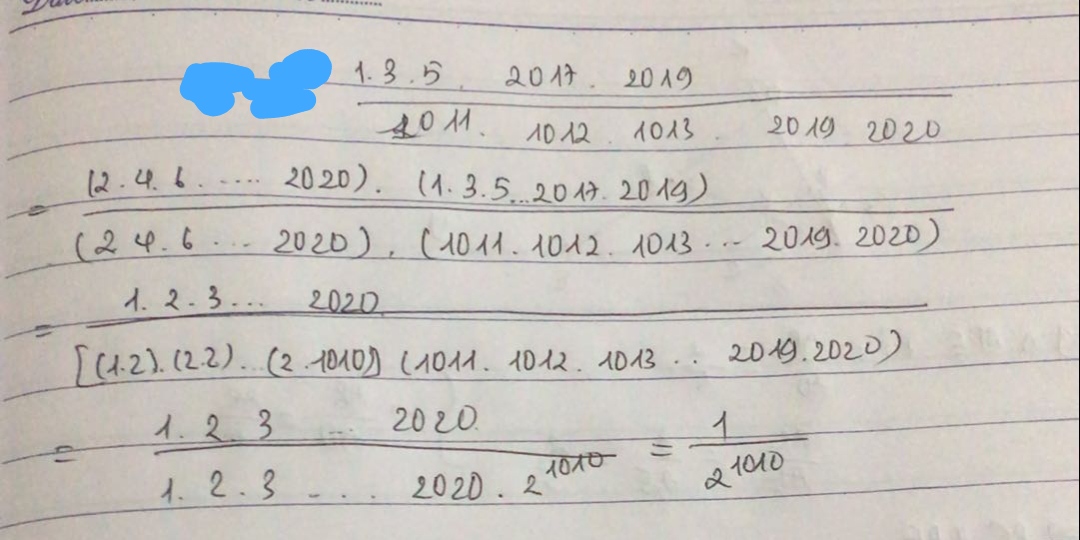 1.3.5 2017. 2019
1011. 1012. 1013. 2019 2020
= (2.4.6..... 2020). (1.3.5...2017.2019)
(2 4.6 ... 2020). (1011.1012.1013... 2019.2020)
= 1.2.3... 2020
[(1.2).(2.2)...(2.1010)] (1011.1012.1013... 2019.2020)
= 1.2.3 ... 2020. = 1
1.2.3 .... 2020.2^1010 2^1010